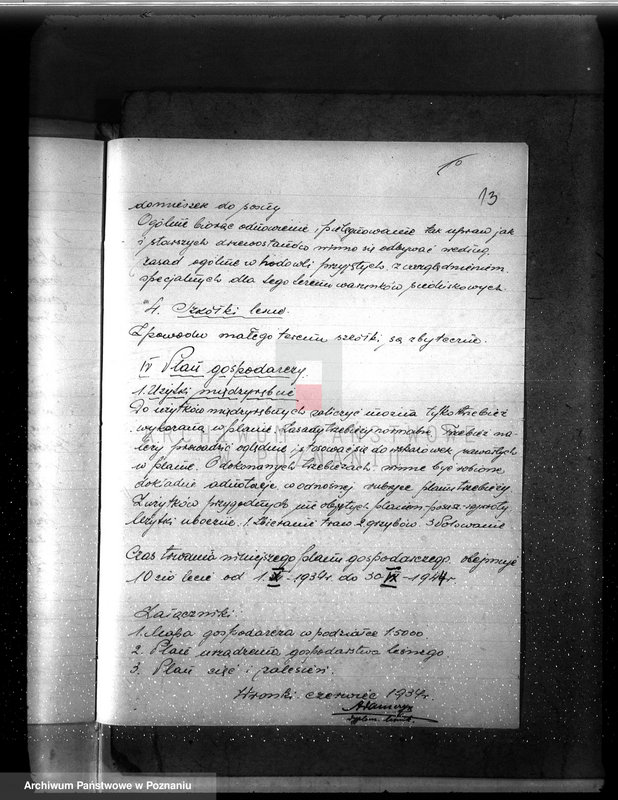 13
domieszek do sosny
Ogólnie biorąc odnowienie i pielęgnowanie tak upraw jak
i starszych drzewostanów winno się odbywać według
zasad ogólnie w hodowli przyjętych z uwzględnieniem
specjalnych dla tego terenu warunków siedliskowych.
4. Szkółki leśne.
Z powodu małego terenu szkółki są zbyteczne.
IV Plan gospodarczy
1. Użytki międzyrębne
Do użytków międzyrębnych zaliczyć można tylko trzebież
wykazaną w planie. Zasady trzebieży normalne. Trzebież na-
leży prowadzić oględnie i stosować się do wskazówek zawartych
w planie. O dokonanych trzebieżach winne być robione
dokładne adnotacje w odnośnej rubryce planu trzebieży
Z użytków przygodnych nie objętych planem
Użytki uboczne. 1. Zbieranie traw 2 grzybów 3 Polowanie
Czas trwania niniejszego planu gospodarczego obejmuje
10 cio lecie od 1.X-1934r. do 30 IX-1944r
Załączniki:
1. Mapa gospodarcza w podziałce 1:5000
2. Plan urządzenia gospodarstwa leśnego
3. Plan cięć i zalesień.
Wronki czerwiec 1934r.
ARCHIWUM PAŃSTWOWE
Archiwum Państwowe w Poznaniu